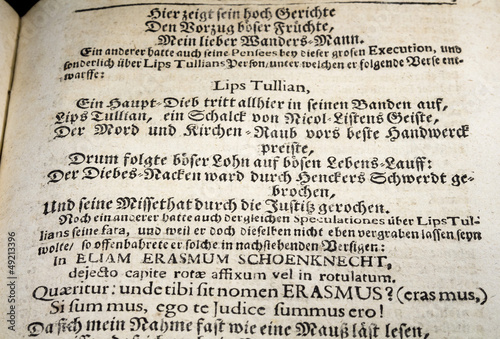 Hier zeigt sein hoch Gerichte
Den Vorzug böser Früchte,
Mein lieber Wanders-Mann.
Ein anderer hatte auch seine Pensees bey dieser grosen Execution, und
sonderlich über Lips Tullians Person, unter welchen er folgende Verse ent-
warffe:
Lips Tullian,
Ein Haupt-Dieb tritt allhier in seinen Banden auf,
Lips Tullian, ein Schalck von Nicol-Listens Geiste,
Der Mord und Kirchen-Raub vors beste Handwerck
preiste,
Drum folgte böser Lohn auf bösen Lebens-Lauff:
Der Diebes-Nacken ward durch Henckers Schwerdt ge-
brochen,
Und seine Missethat durch die Justitz gerochen.
Noch ein anderer hatte auch dergleichen Speculationes über Lips Tul-
lians seine fata, und weil er doch dieselben nicht eben vergraben lassen seyn
wolte, so offenbahrete er solche in nachstehenden Versigen:
In ELIAM ERASMUM SCHOENKNECHT,
dejecto capite rotæ affixum vel in rotulatum.
Quæritur: unde tibi sit nomen ERASMUS? (eras mus,)
Si sum mus, ego te Judice summus ero!
Da sich mein Nahme fast wie eine Mauß läst lesen,
Adobe Stock | #49213396